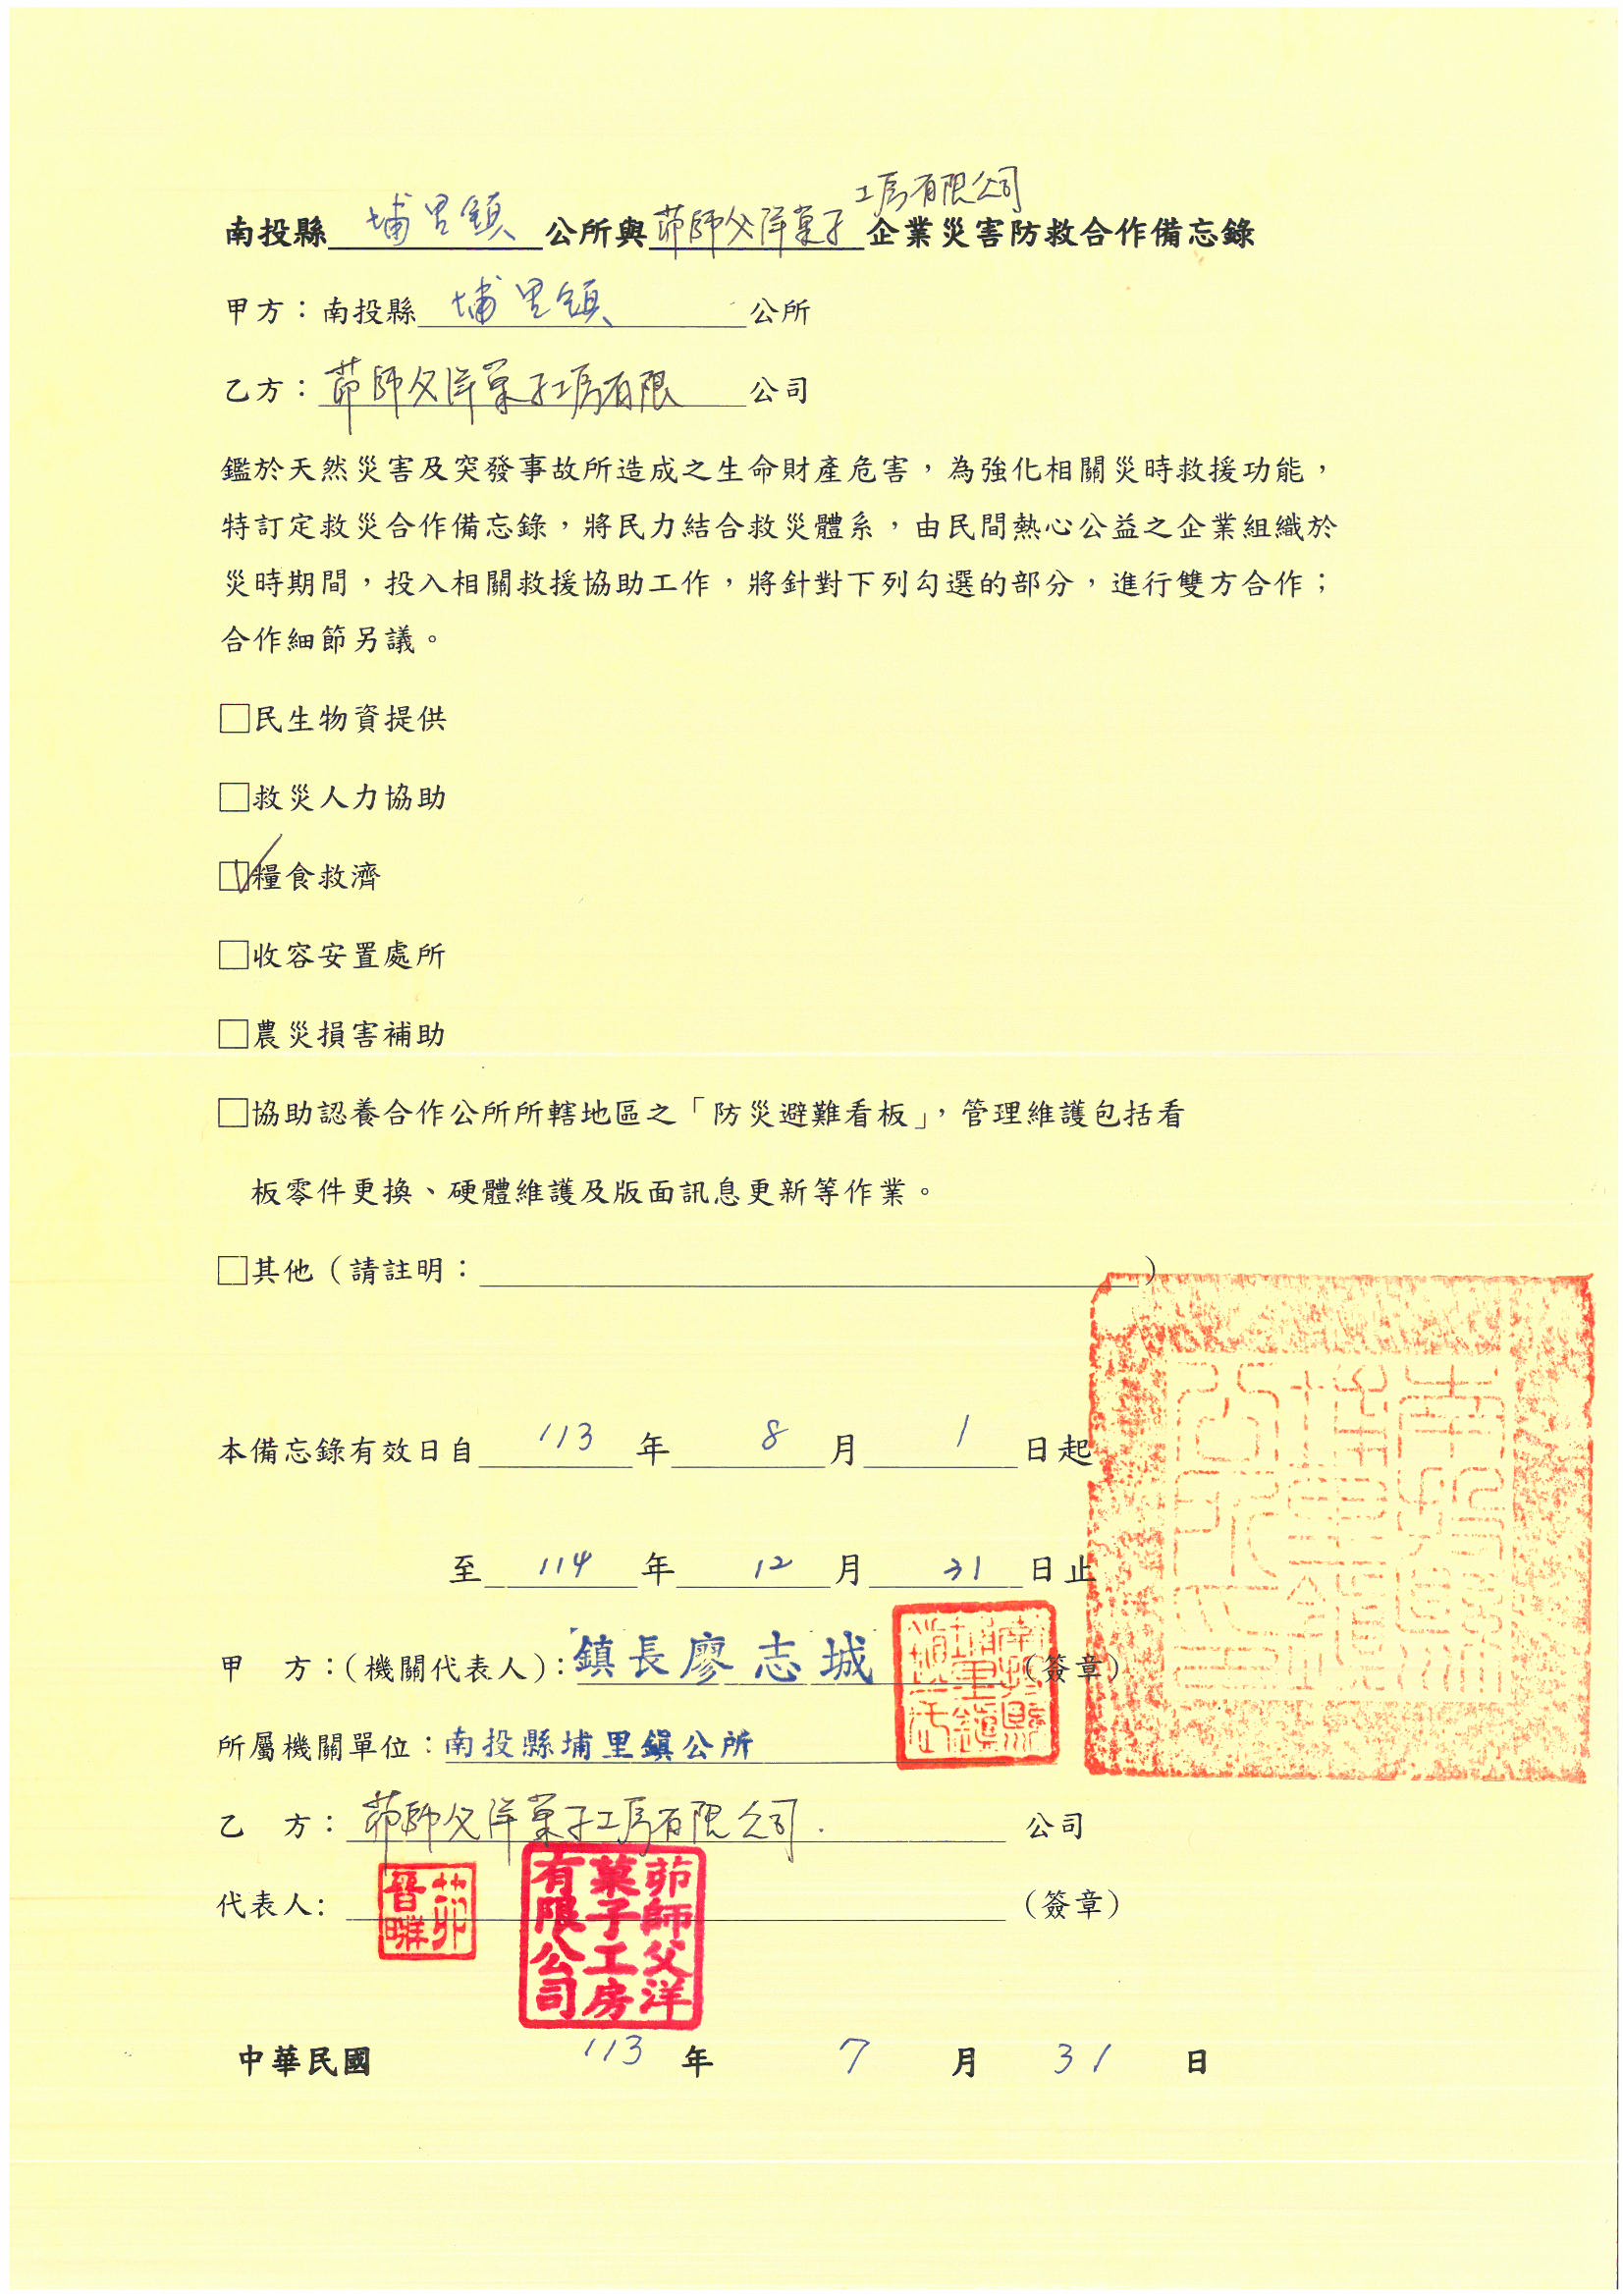 工房有限公司
南投縣埔里鎮公所與茆師父洋菓子企業災害防救合作備忘錄
甲方：南投縣埔里鎮公所
乙方：茆師父洋菓子工房有限公司
鑑於天然災害及突發事故所造成之生命財產危害，為強化相關災時救援功能，
特訂定救災合作備忘錄，將民力結合救災體系，由民間熱心公益之企業組織於
災時期間，投入相關救援協助工作，將針對下列勾選的部分，進行雙方合作；
合作細節另議。
□民生物資提供
□救災人力協助
☑糧食救濟
□收容安置處所
□農災損害補助
□協助認養合作公所所轄地區之「防災避難看板」，管理維護包括看
板零件更換、硬體維護及版面訊息更新等作業。
□其他（請註明：＿＿＿＿）
本備忘錄有效日自 113 年 8 月 1 日起
至 114 年 12 月 31 日止
南投縣埔里鎮公所印
甲　方：(機關代表人)：鎮長廖志城（簽章）
所屬機關單位：南投縣埔里鎮公所
乙　方：茆師父洋菓子工房有限公司. 公司
代表人：（簽章）
茆師父洋菓子工房有限公司
中華民國 113 年 7 月 31 日